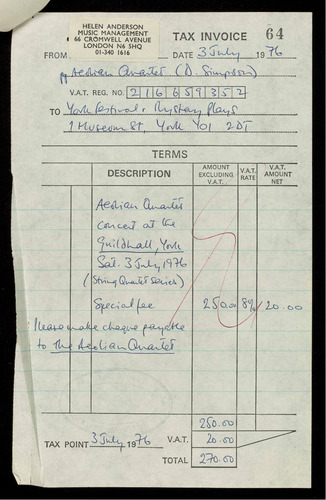 HELEN ANDERSON
MUSIC MANAGEMENT
66 CROMWELL AVENUE
LONDON N6 5HQ
01-340 1616
TAX INVOICE 64
FROM
DATE 3 July 1976
pp Aeolian Quartet (D. Simpson)
V.A.T. REG. NO. 216659352
TO York Festival & Mystery Plays
1 Museum St, York YO1 2DT
TERMS
DESCRIPTION
AMOUNT EXCLUDING V.A.T.
V.A.T. RATE
V.A.T. AMOUNT NET
Aeolian Quartet
concert at the
Guildhall, York
Sat. 3 July, 1976
(String Quartet Series)
Special fee 250.00 8% 20.00
Please make cheque payable
to The Aeolian Quartet
250.00
TAX POINT 3 July 1976 V.A.T. 20.00
TOTAL 270.00